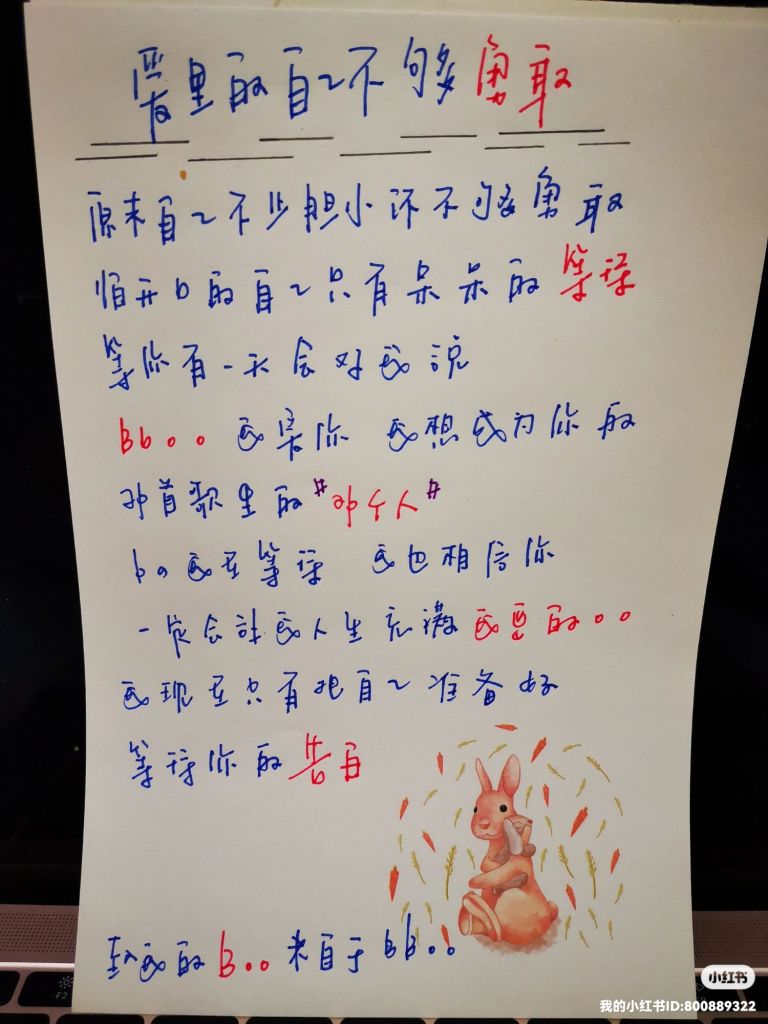 爱里的自己不够勇敢
原来自己不止胆小还不够勇敢
怕开口的自己只有呆呆的等待
等你有一天会对我说
Bb○○ 我爱你 我想成为你的
那首歌里的"那个人"
bo我在等待 我也相信你
一定会让我人生充满我要的○○
我现在只有把自己准备好
等待你的告白
致我的B○○来自于BB○○
F2
小红书
我的小红书ID:800889322